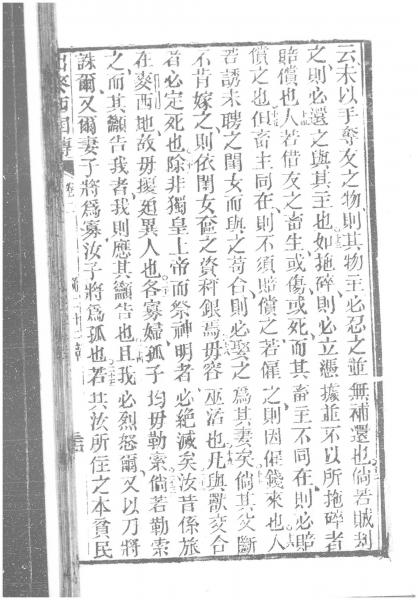 云未以手奪友之物則其物主必忍之並無補還也倘若賊刦
之則必還之與其主也如拖碎則必立憑據並不以所拖碎者
賠償也人若借友之畜生或傷或死而其畜主不同在則必賠
償之也但畜主同在則不須賠償之若僱之則因僱錢來也人
若誘未聘之閨女而與之苟合則必娶之為其妻矣倘其父斷
不肯嫁之則依閨女奩之資秤銀焉毋容巫活也凡與獸交合
者必定死也除非獨皇上帝而祭神明者必絕滅矣汝昔係旅
在麥西地故毋擾廹異人也各寡婦孤子均毋勒索倘若勒索
之而其籲告我者我則應其籲告也且我必烈怒爾又以刀將
誅爾又爾妻子將為寡汝子將為孤也若其汝所住之本貧民
出麥西國傳